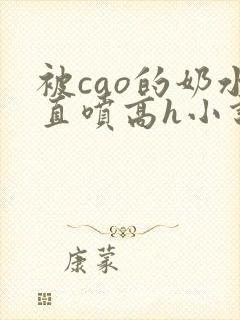 被cao的奶水
直喷高h小
康蒙